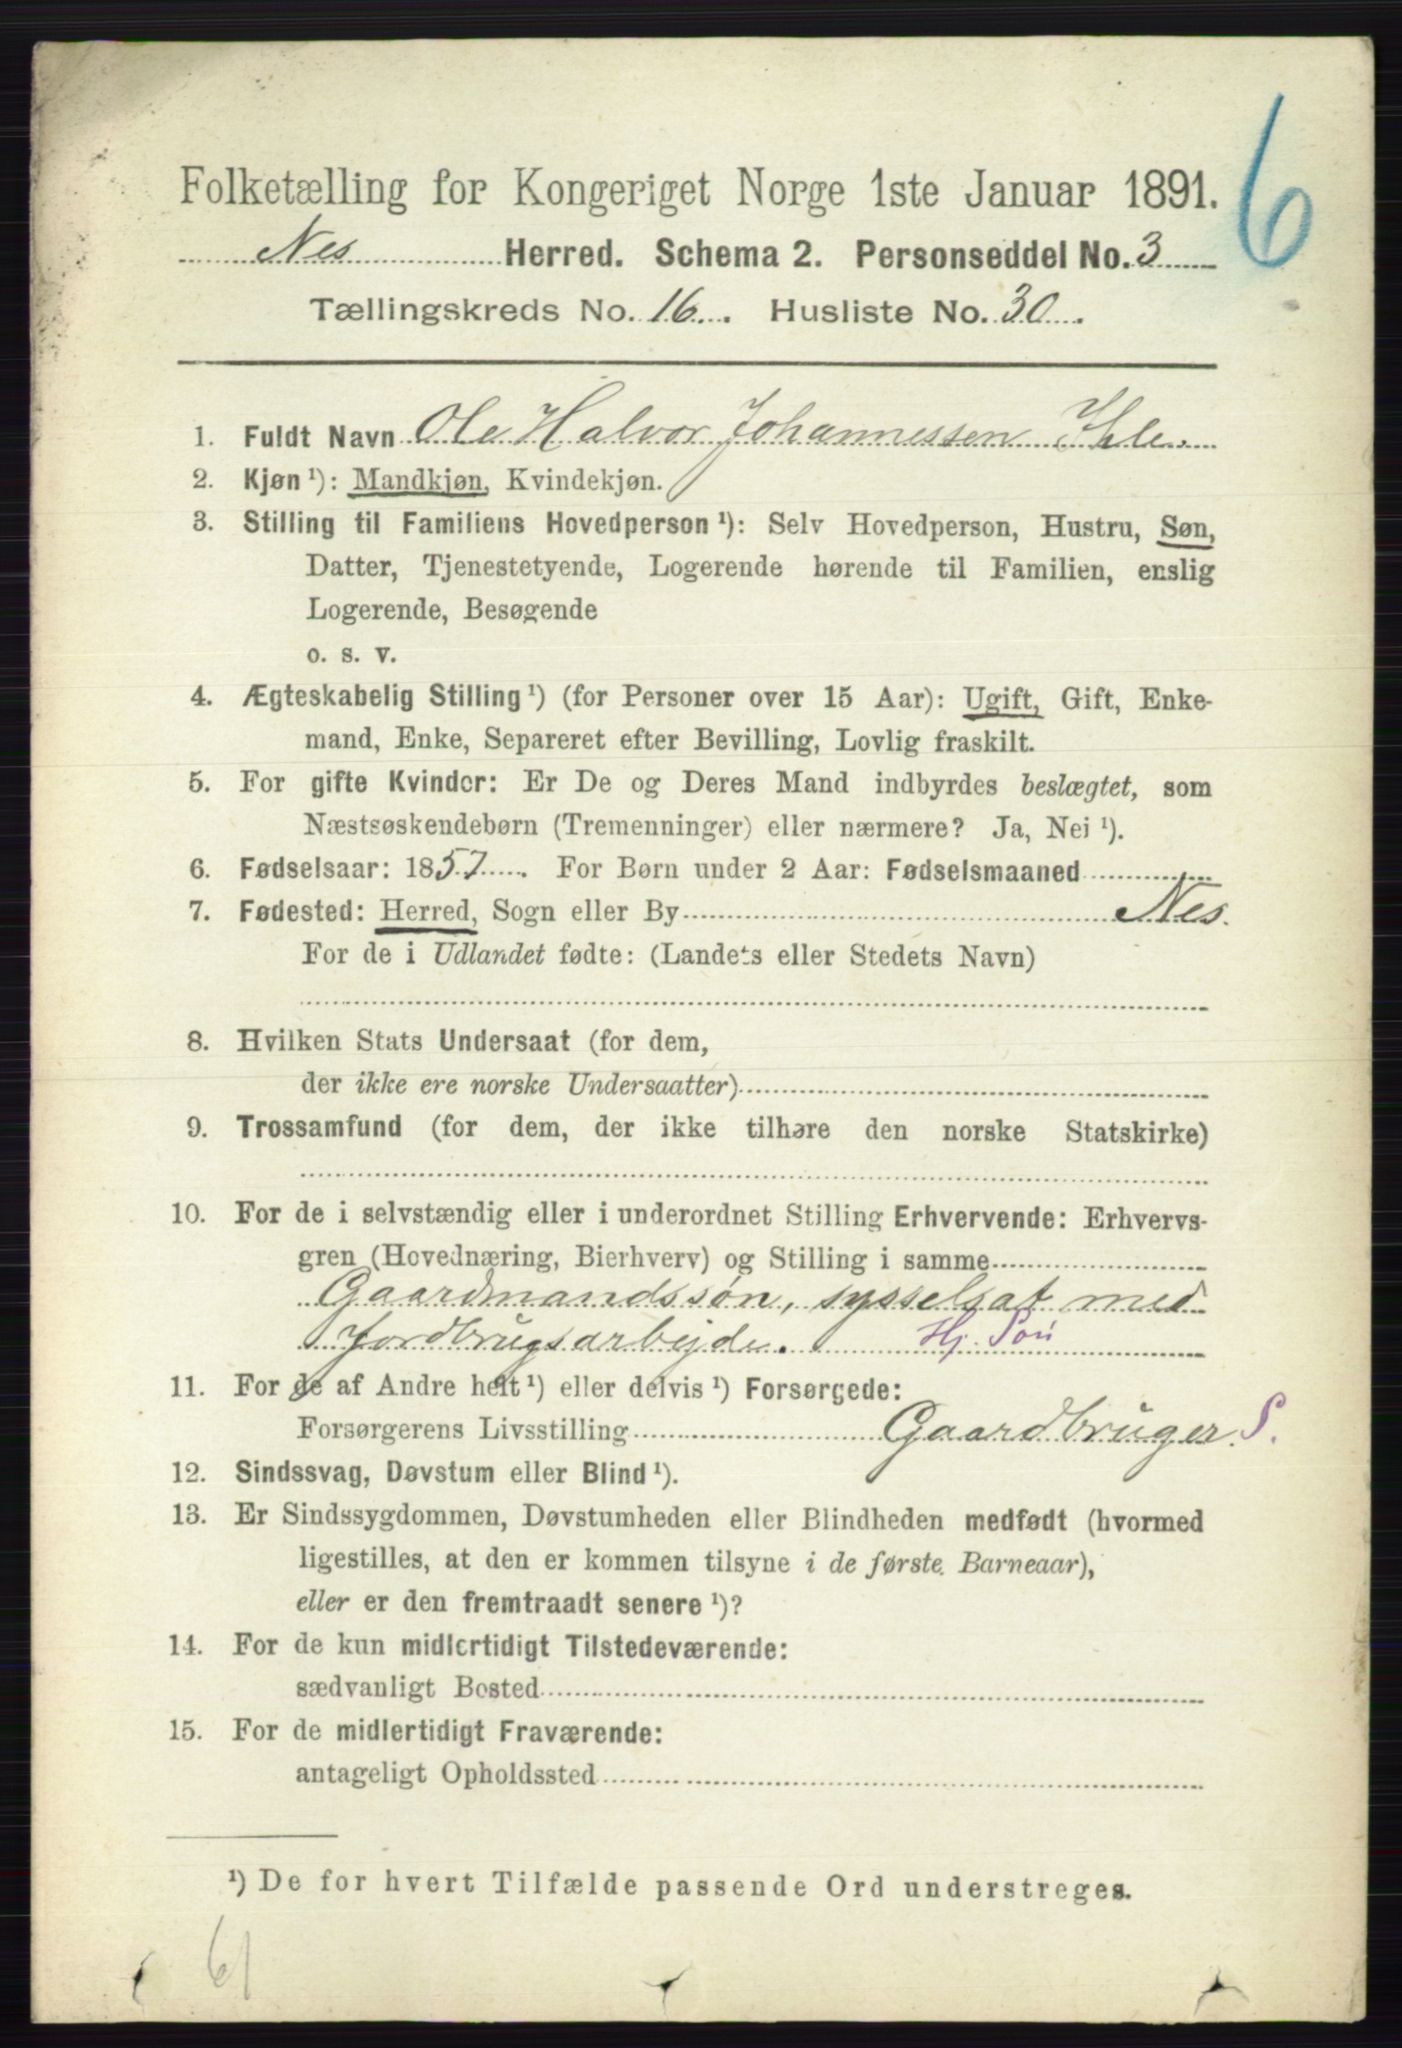 6
Folketælling for Kongeriget Norge 1ste Januar 1891.
Nes Herred. Schema 2. Personseddel No. 3
Tællingskreds No. 16. Husliste No. 30.
1. Fuldt Navn Ole Halvor Johannessen Ihle.
2. Kjøn ¹): Mandkjøn, Kvindekjøn.
3. Stilling til Familiens Hovedperson ¹): Selv Hovedperson, Hustru, Søn,
Datter, Tjenestetyende, Logerende hørende til Familien, enslig
Logerende, Besøgende
o. s. v.
4. Ægteskabelig Stilling ¹) (for Personer over 15 Aar): Ugift, Gift, Enke-
mand, Enke, Separeret efter Bevilling, Lovlig fraskilt.
5. For gifte Kvinder: Er De og Deres Mand indbyrdes beslægtet, som
Næstsøskendebørn (Tremenninger) eller nærmere? Ja, Nei ¹).
6. Fødselsaar: 1857. For Børn under 2 Aar: Fødselsmaaned
7. Fødested: Herred, Sogn eller By Nes.
For de i Udlandet fødte: (Landets eller Stedets Navn)
8. Hvilken Stats Undersaat (for dem,
der ikke ere norske Undersaatter)
9. Trossamfund (for dem, der ikke tilhøre den norske Statskirke)
10. For de i selvstændig eller i underordnet Stilling Erhvervende: Erhvervs-
gren (Hovednæring, Bierhverv) og Stilling i samme
Gaardmandssøn, sysselsat med
Jordbrugsarbejde. Hj. Søn
11. For de af Andre helt ¹) eller delvis ¹) Forsørgede:
Forsørgerens Livsstilling Gaardbruger. S.
12. Sindssvag, Døvstum eller Blind ¹).
13. Er Sindssygdommen, Døvstumheden eller Blindheden medfødt (hvormed
ligestilles, at den er kommen tilsyne i de første Barneaar),
eller er den fremtraadt senere ¹)?
14. For de kun midlertidigt Tilstedeværende:
sædvanligt Bosted
15. For de midlertidigt Fraværende:
antageligt Opholdssted
¹) De for hvert Tilfælde passende Ord understreges.
61